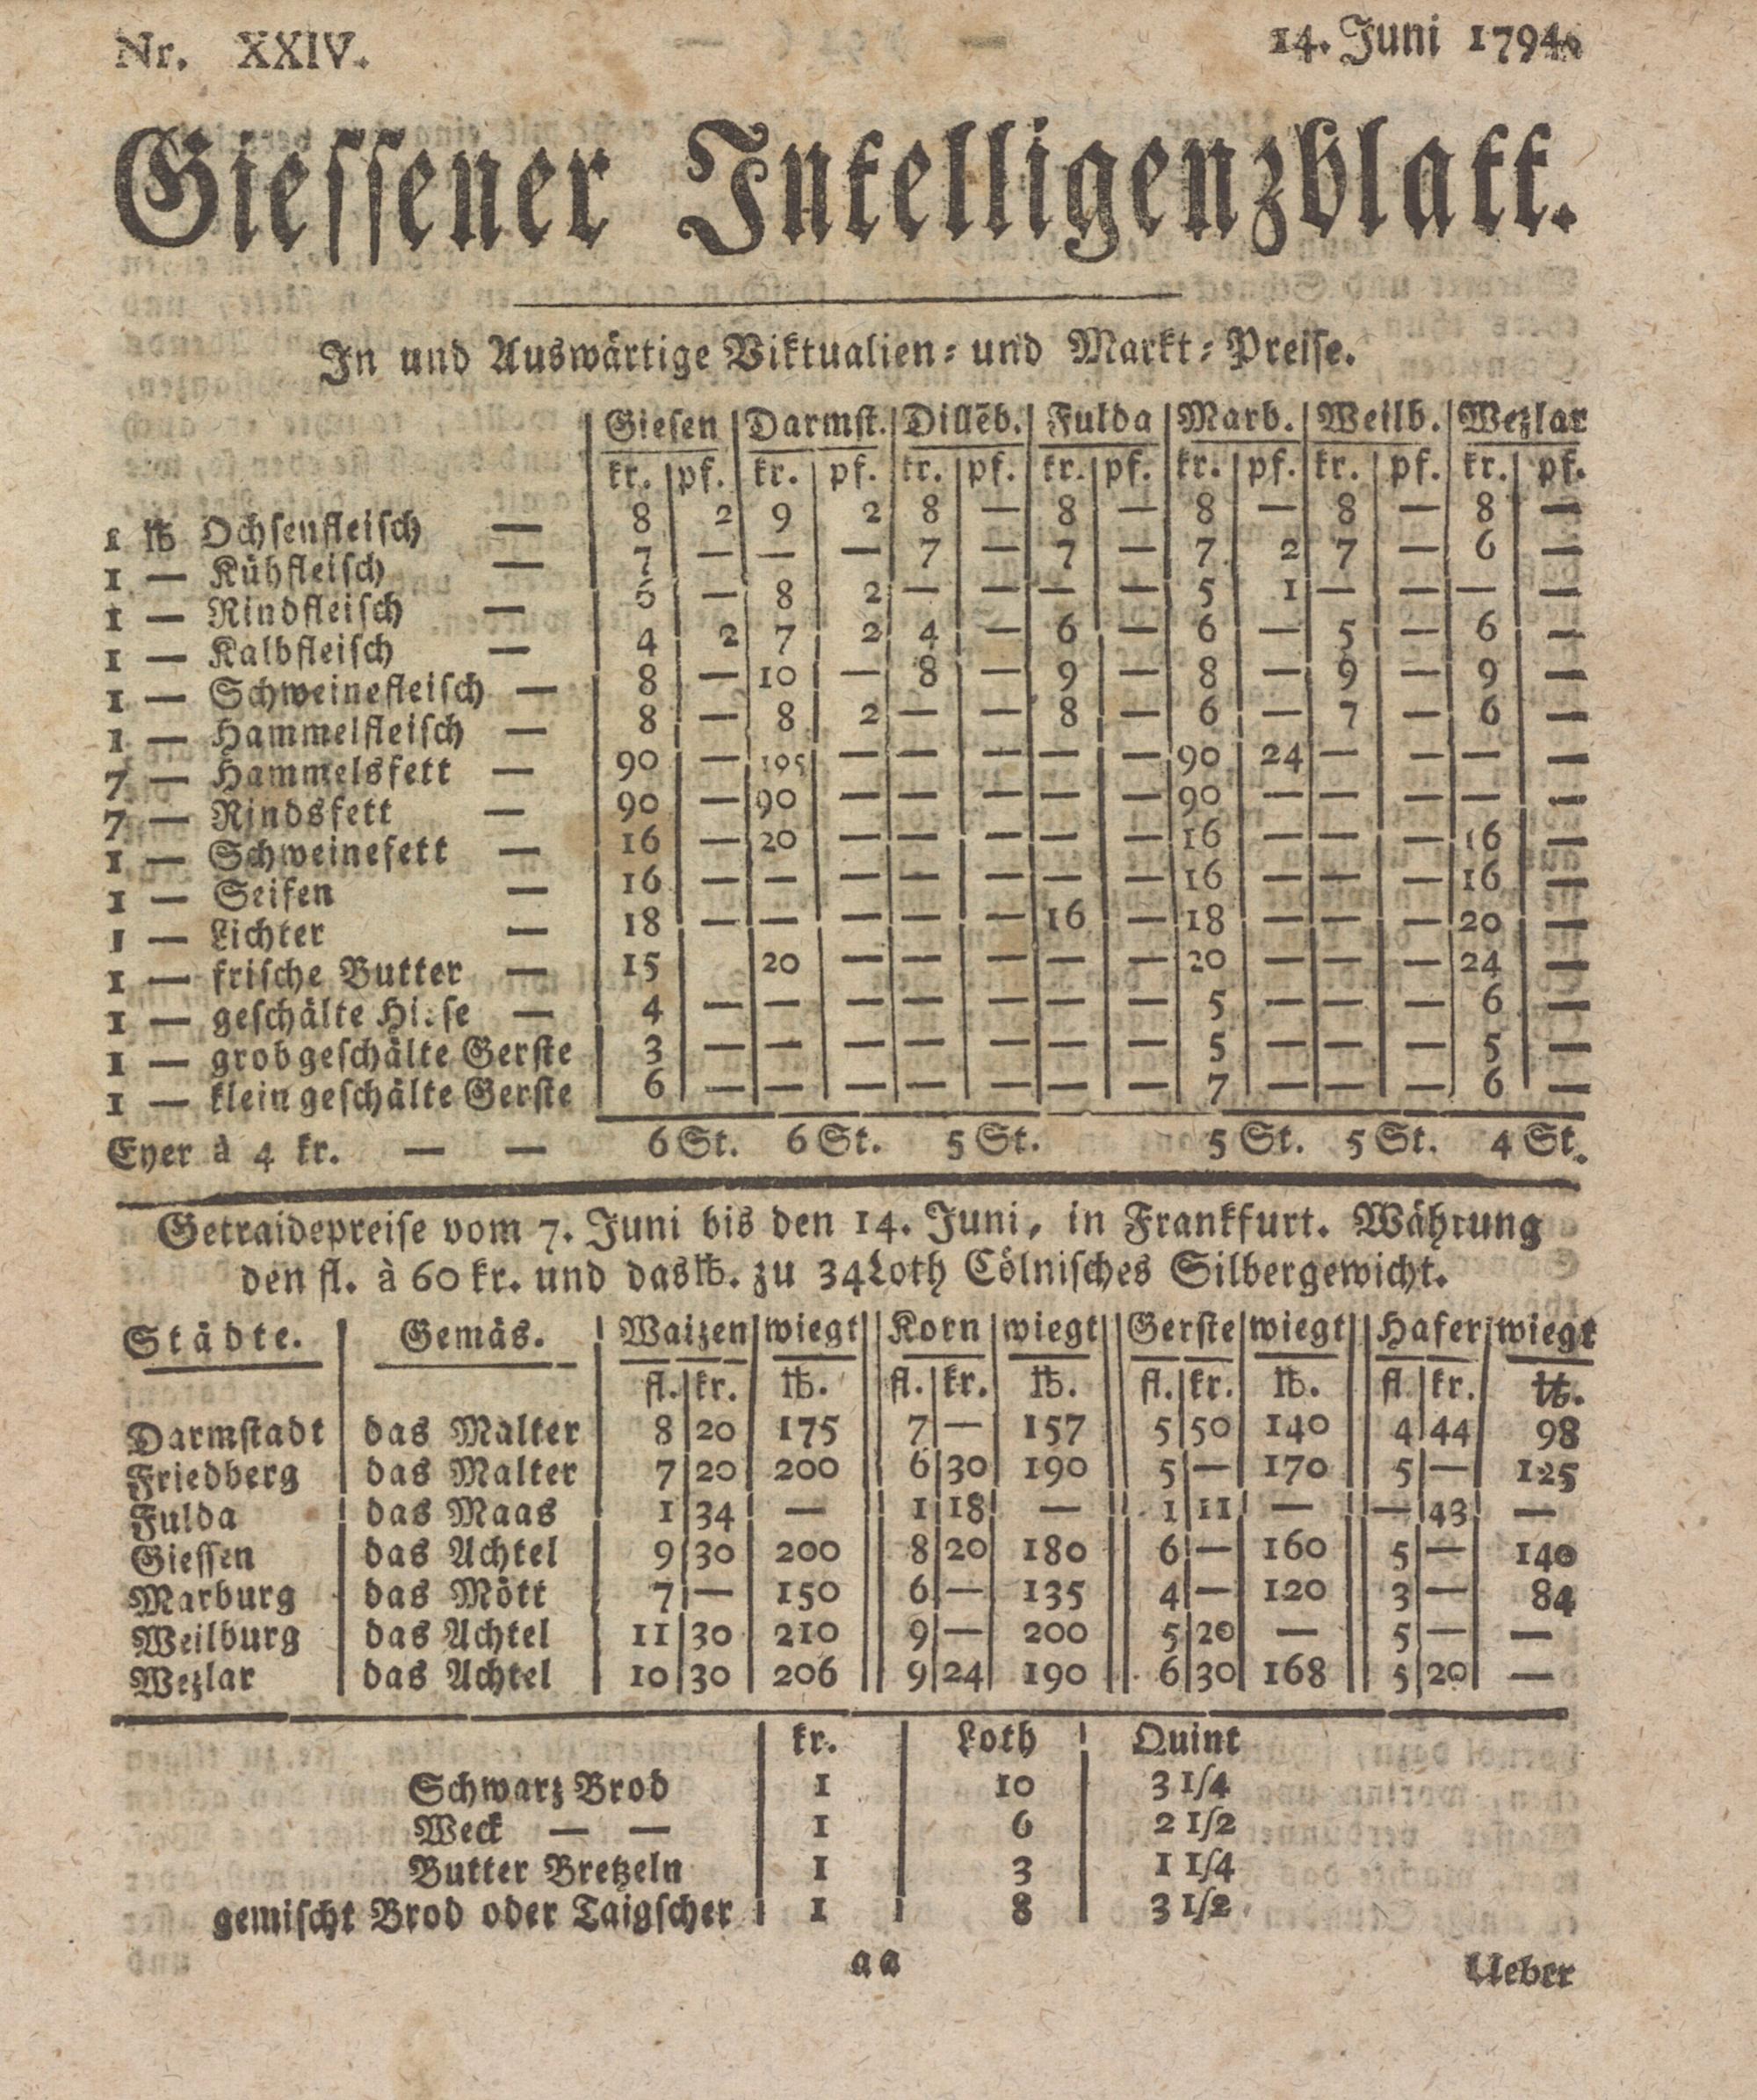 Nr. XXIV. 14. Juni 1794.
Giessener Intelligenzblatt.
In und Auswärtige Viktualien- und Markt-Preise.
Giesen | Darmst. | Dillēb. | Fulda | Marb. | Weilb. | Wezlar
kr. | pf. | kr. | pf. | kr. | pf. | kr. | pf. | kr. | pf. | kr. | pf. | kr. | pf.
1 ℔ Ochsenfleisch — | 8 | 2 | 9 | 2 | 8 | — | 8 | — | 8 | — | 8 | — | 8 | —
1 — Kühfleisch — | 7 | — | — | — | 7 | — | 7 | — | 7 | 2 | 7 | — | 6 | —
1 — Rindfleisch — | 6 | — | 8 | 2 | — | — | — | — | 5 | 1 | — | — | — | —
1 — Kalbfleisch — | 4 | 2 | 7 | 2 | 4 | — | 6 | — | 6 | — | 5 | — | 6 | —
1 — Schweinefleisch — | 8 | — | 10 | — | 8 | — | 9 | — | 8 | — | 9 | — | 9 | —
1 — Hammelfleisch — | 8 | — | 8 | 2 | — | — | 8 | — | 6 | — | 7 | — | 6 | —
7 — Hammelsfett — | 90 | — | 105 | — | — | — | — | — | 90 | 24 | — | — | — | —
7 — Rindsfett — | 90 | — | 90 | — | — | — | — | — | 90 | — | — | — | — | —
1 — Schweinefett — | 16 | — | 20 | — | — | — | — | — | 16 | — | — | — | 16 | —
1 — Seifen — | 16 | — | — | — | — | — | — | — | 16 | — | — | — | 16 | —
1 — Lichter — | 18 | — | — | — | — | — | 16 | — | 18 | — | — | — | 20 | —
1 — frische Butter — | 15 | | 20 | — | — | — | — | — | 20 | — | — | — | 24 | —
1 — geschälte — | 4 | — | — | — | — | — | — | — | 5 | — | — | — | 6 | —
1 — grobgeschälte Gerste | 3 | — | — | — | — | — | — | — | 5 | — | — | — | 5 | —
1 — klein geschälte Gerste | 6 | — | — | — | — | — | — | — | 7 | — | — | — | 6 | —
Eyer à 4 kr. — — 6 St. 6 St. 5 St. 5 St. 5 St. 4 St.
Getraidepreise vom 7. Juni bis den 14. Juni, in Frankfurt. Währung
den fl. à 60 kr. und das ℔. zu 34 Loth Cölnisches Silbergewicht.
Städte. | Gemäs. | Waizen | wiegt || Korn | wiegt || Gerste | wiegt || Hafer | wiegt
fl. | kr. | ℔. || fl. | kr. | ℔. || fl. | kr. | ℔. || fl | kr. | ℔.
Darmstadt | das Malter | 8 | 20 | 175 || 7 | — | 157 || 5 | 50 | 140 || 4 | 44 | 98
Friedberg | das Malter | 7 | 20 | 200 || 6 | 30 | 190 || 5 | — | 170 || 5 | — | 125
Fulda | das Maas | 1 | 34 | — || 1 | 18 | — || 1 | 11 | — || — | 43 | —
Giessen | das Achtel | 9 | 30 | 200 || 8 | 20 | 180 || 6 | — | 160 || 5 | — | 140
Marburg | das Mött | 7 | — | 150 || 6 | — | 135 || 4 | — | 120 || 3 | — | 84
Weilburg | das Achtel | 11 | 30 | 210 || 9 | — | 200 || 5 | 20 | — || 5 | — | —
Wezlar | das Achtel | 10 | 30 | 206 || 9 | 24 | 190 || 6 | 30 | 168 || 5 | 20 | —
kr. | Loth | Quint
Schwarz Brod | 1 | 10 | 3 1/4
Weck — — | 1 | 6 | 2 1/2
Butter Bretzeln | 1 | 3 | 1 1/4
gemischt Brod oder Taigscher | 1 | 8 | 3 1/2
aa Ueber